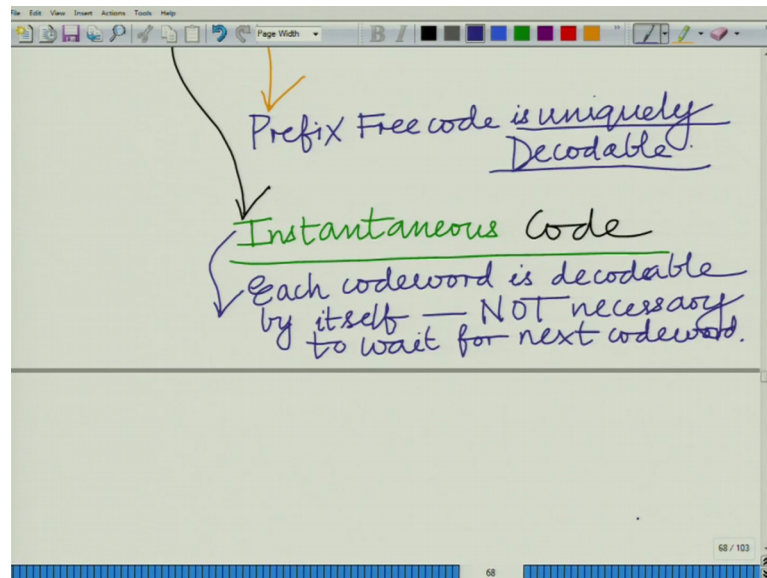 File Edit View Insert Actions Tools Help
Page Width
B I
Prefix Free code is uniquely
Decodable.
Instantaneous Code
Each codeword is decodable
by itself — NOT necessary
to wait for next codeword.
68 / 103
68